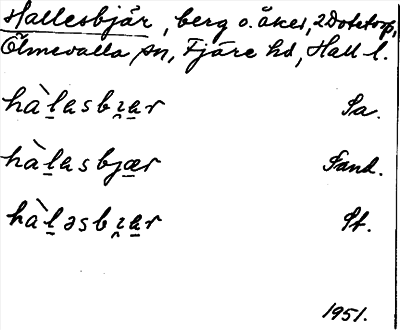 Hallesbjär, berg o. åker, 2 Dotetorp,
Ölmevalla sn, Fjäre hd, Hall l.
hàl̲asbɪ̯a̲r Sa.
hàl̲asbjæ̲r Sand.
hàl̲əsbɪ̯a̲r St.
1951.